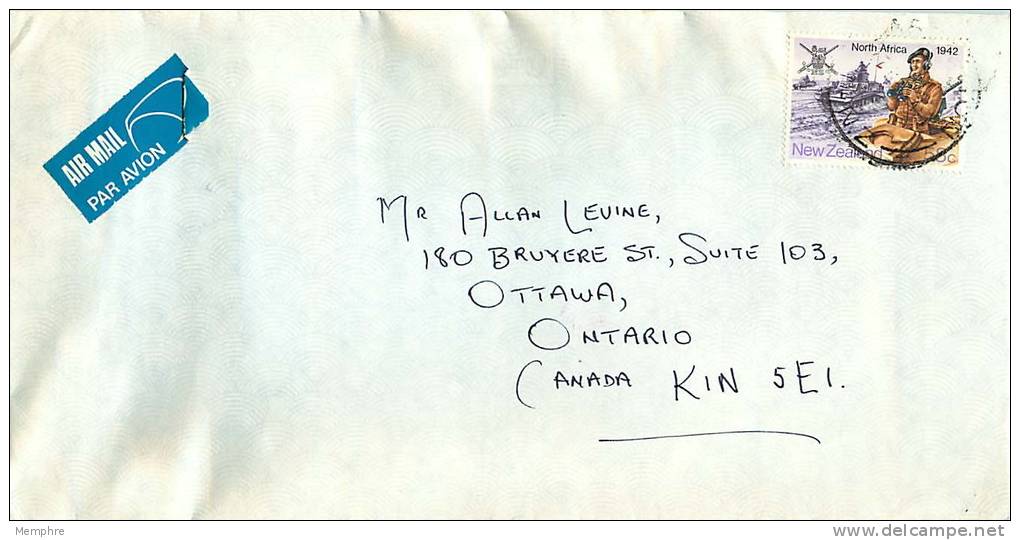 AIR MAIL
PAR AVION
North Africa 1942
New Zealand
Mr Allan Levine,
180 Bruyere St., Suite 103,
Ottawa,
Ontario
Canada K1N 5E1.
Memphre
http://www.delcampe.net